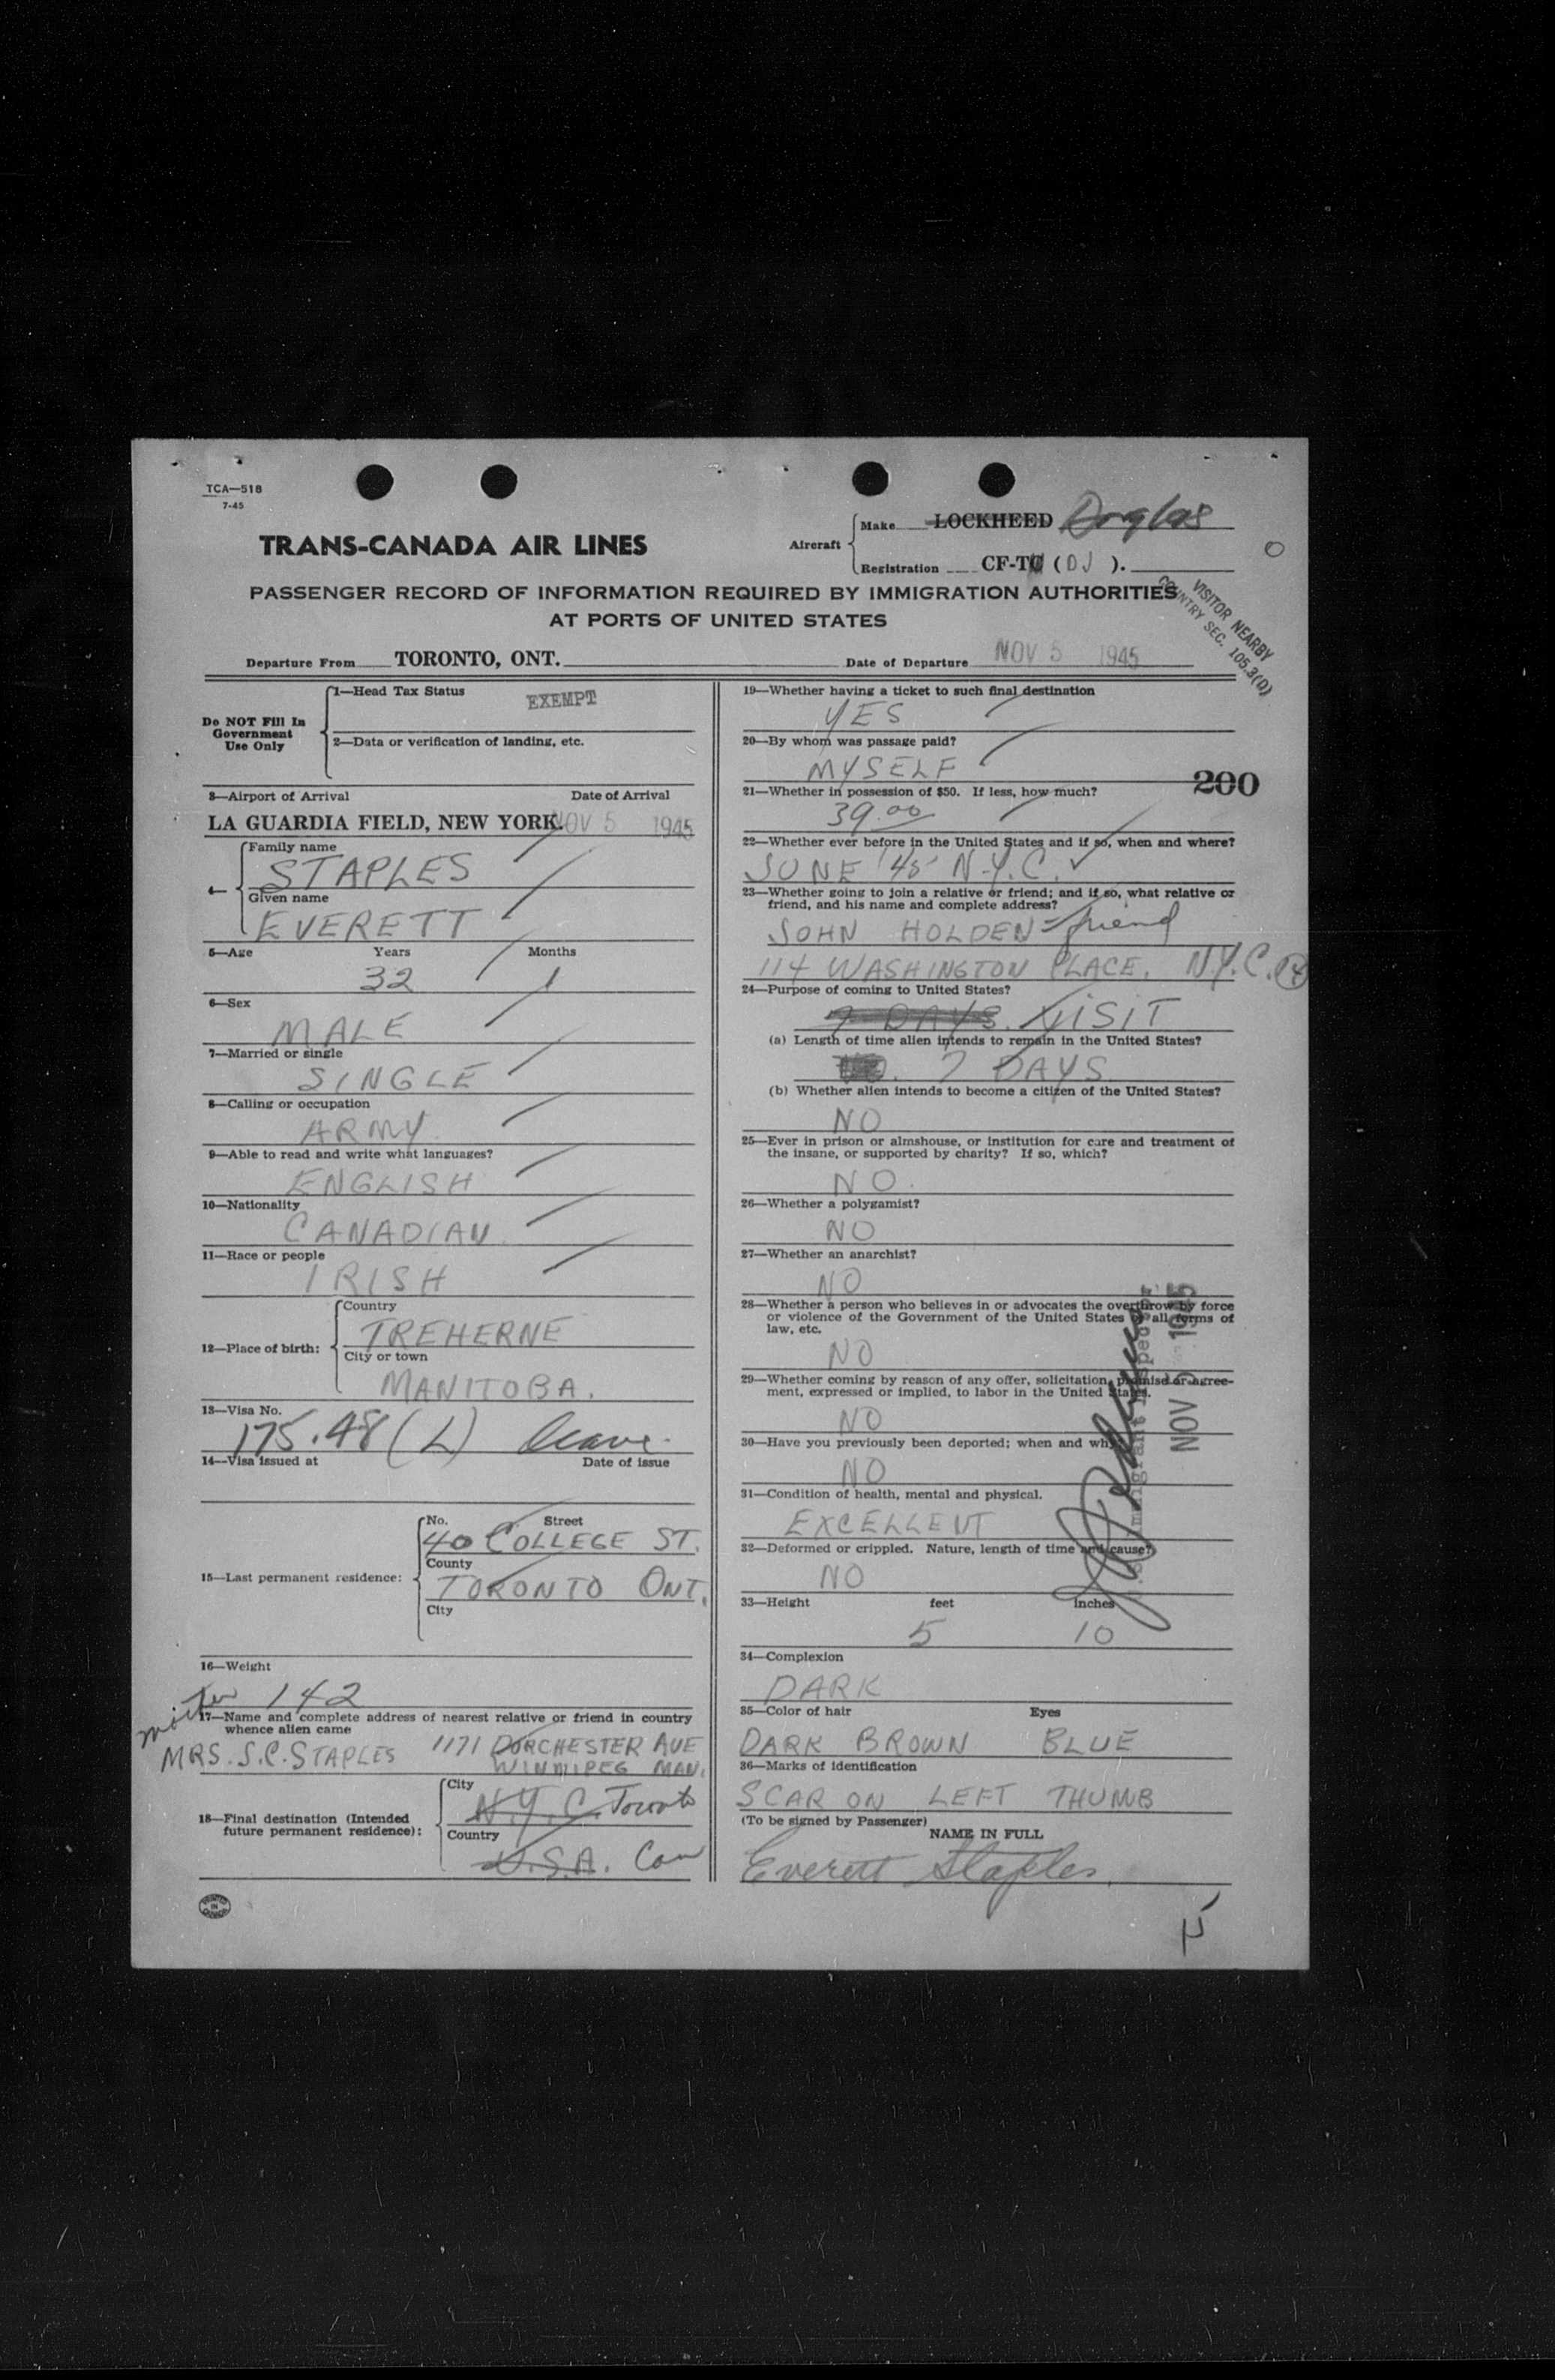 TCA—518
7-45
TRANS-CANADA AIR LINES
Aircraft
Make LOCKHEED Douglas
Registration CF-T (DJ ).
PASSENGER RECORD OF INFORMATION REQUIRED BY IMMIGRATION AUTHORITIES
AT PORTS OF UNITED STATES
VISITOR NEARBY
COUNTRY SEC. 105.3(D)
Departure From TORONTO, ONT. Date of Departure NOV 5 1945
Do NOT Fill In
Government
Use Only
1—Head Tax Status EXEMPT
2—Data or verification of landing, etc.
3—Airport of Arrival Date of Arrival
LA GUARDIA FIELD, NEW YORK. NOV 5 1945
4—
Family name
STAPLES
Given name
EVERETT
5—Age Years Months
32 1
6—Sex
MALE
7—Married or single
SINGLE
8—Calling or occupation
ARMY
9—Able to read and write what languages?
ENGLISH
10—Nationality
CANADIAN
11—Race or people
IRISH
12—Place of birth:
Country
TREHERNE
City or town
MANITOBA.
13—Visa No.
175.48 (L) leave
14—Visa issued at Date of issue
15—Last permanent residence:
No. Street
40 COLLEGE ST.
County
TORONTO ONT.
City
16—Weight
142
mother
17—Name and complete address of nearest relative or friend in country
whence alien came
MRS. S.C. STAPLES 1171 DORCHESTER AVE
WINNIPEG MAN.
18—Final destination (Intended
future permanent residence):
City
N.Y.C. Toronto
Country
U.S.A. Can
PRINTED
IN
CANADA
19—Whether having a ticket to such final destination
YES
20—By whom was passage paid?
MYSELF
200
21—Whether in possession of $50. If less, how much?
39.00
22—Whether ever before in the United States and if so, when and where?
JUNE '45 N.Y.C.
23—Whether going to join a relative or friend; and if so, what relative or
friend, and his name and complete address?
JOHN HOLDEN - friend
114 WASHINGTON PLACE. N.Y.C. 14
24—Purpose of coming to United States?
7 DAYS. VISIT
(a) Length of time alien intends to remain in the United States?
7 DAYS
(b) Whether alien intends to become a citizen of the United States?
NO
25—Ever in prison or almshouse, or institution for care and treatment of
the insane, or supported by charity? If so, which?
NO.
26—Whether a polygamist?
NO
27—Whether an anarchist?
NO
28—Whether a person who believes in or advocates the overthrow by force
or violence of the Government of the United States or all forms of
law, etc.
NO
29—Whether coming by reason of any offer, solicitation, promise or agree-
ment, expressed or implied, to labor in the United States.
NO
30—Have you previously been deported; when and why?
NO
31—Condition of health, mental and physical.
EXCELLENT
32—Deformed or crippled. Nature, length of time and cause?
NO
Immigrant Inspector
NOV 5 1945
33—Height feet inches
5 10
34—Complexion
DARK
35—Color of hair Eyes
DARK BROWN BLUE
36—Marks of identification
SCAR ON LEFT THUMB
(To be signed by Passenger)
NAME IN FULL
Everett Staples.